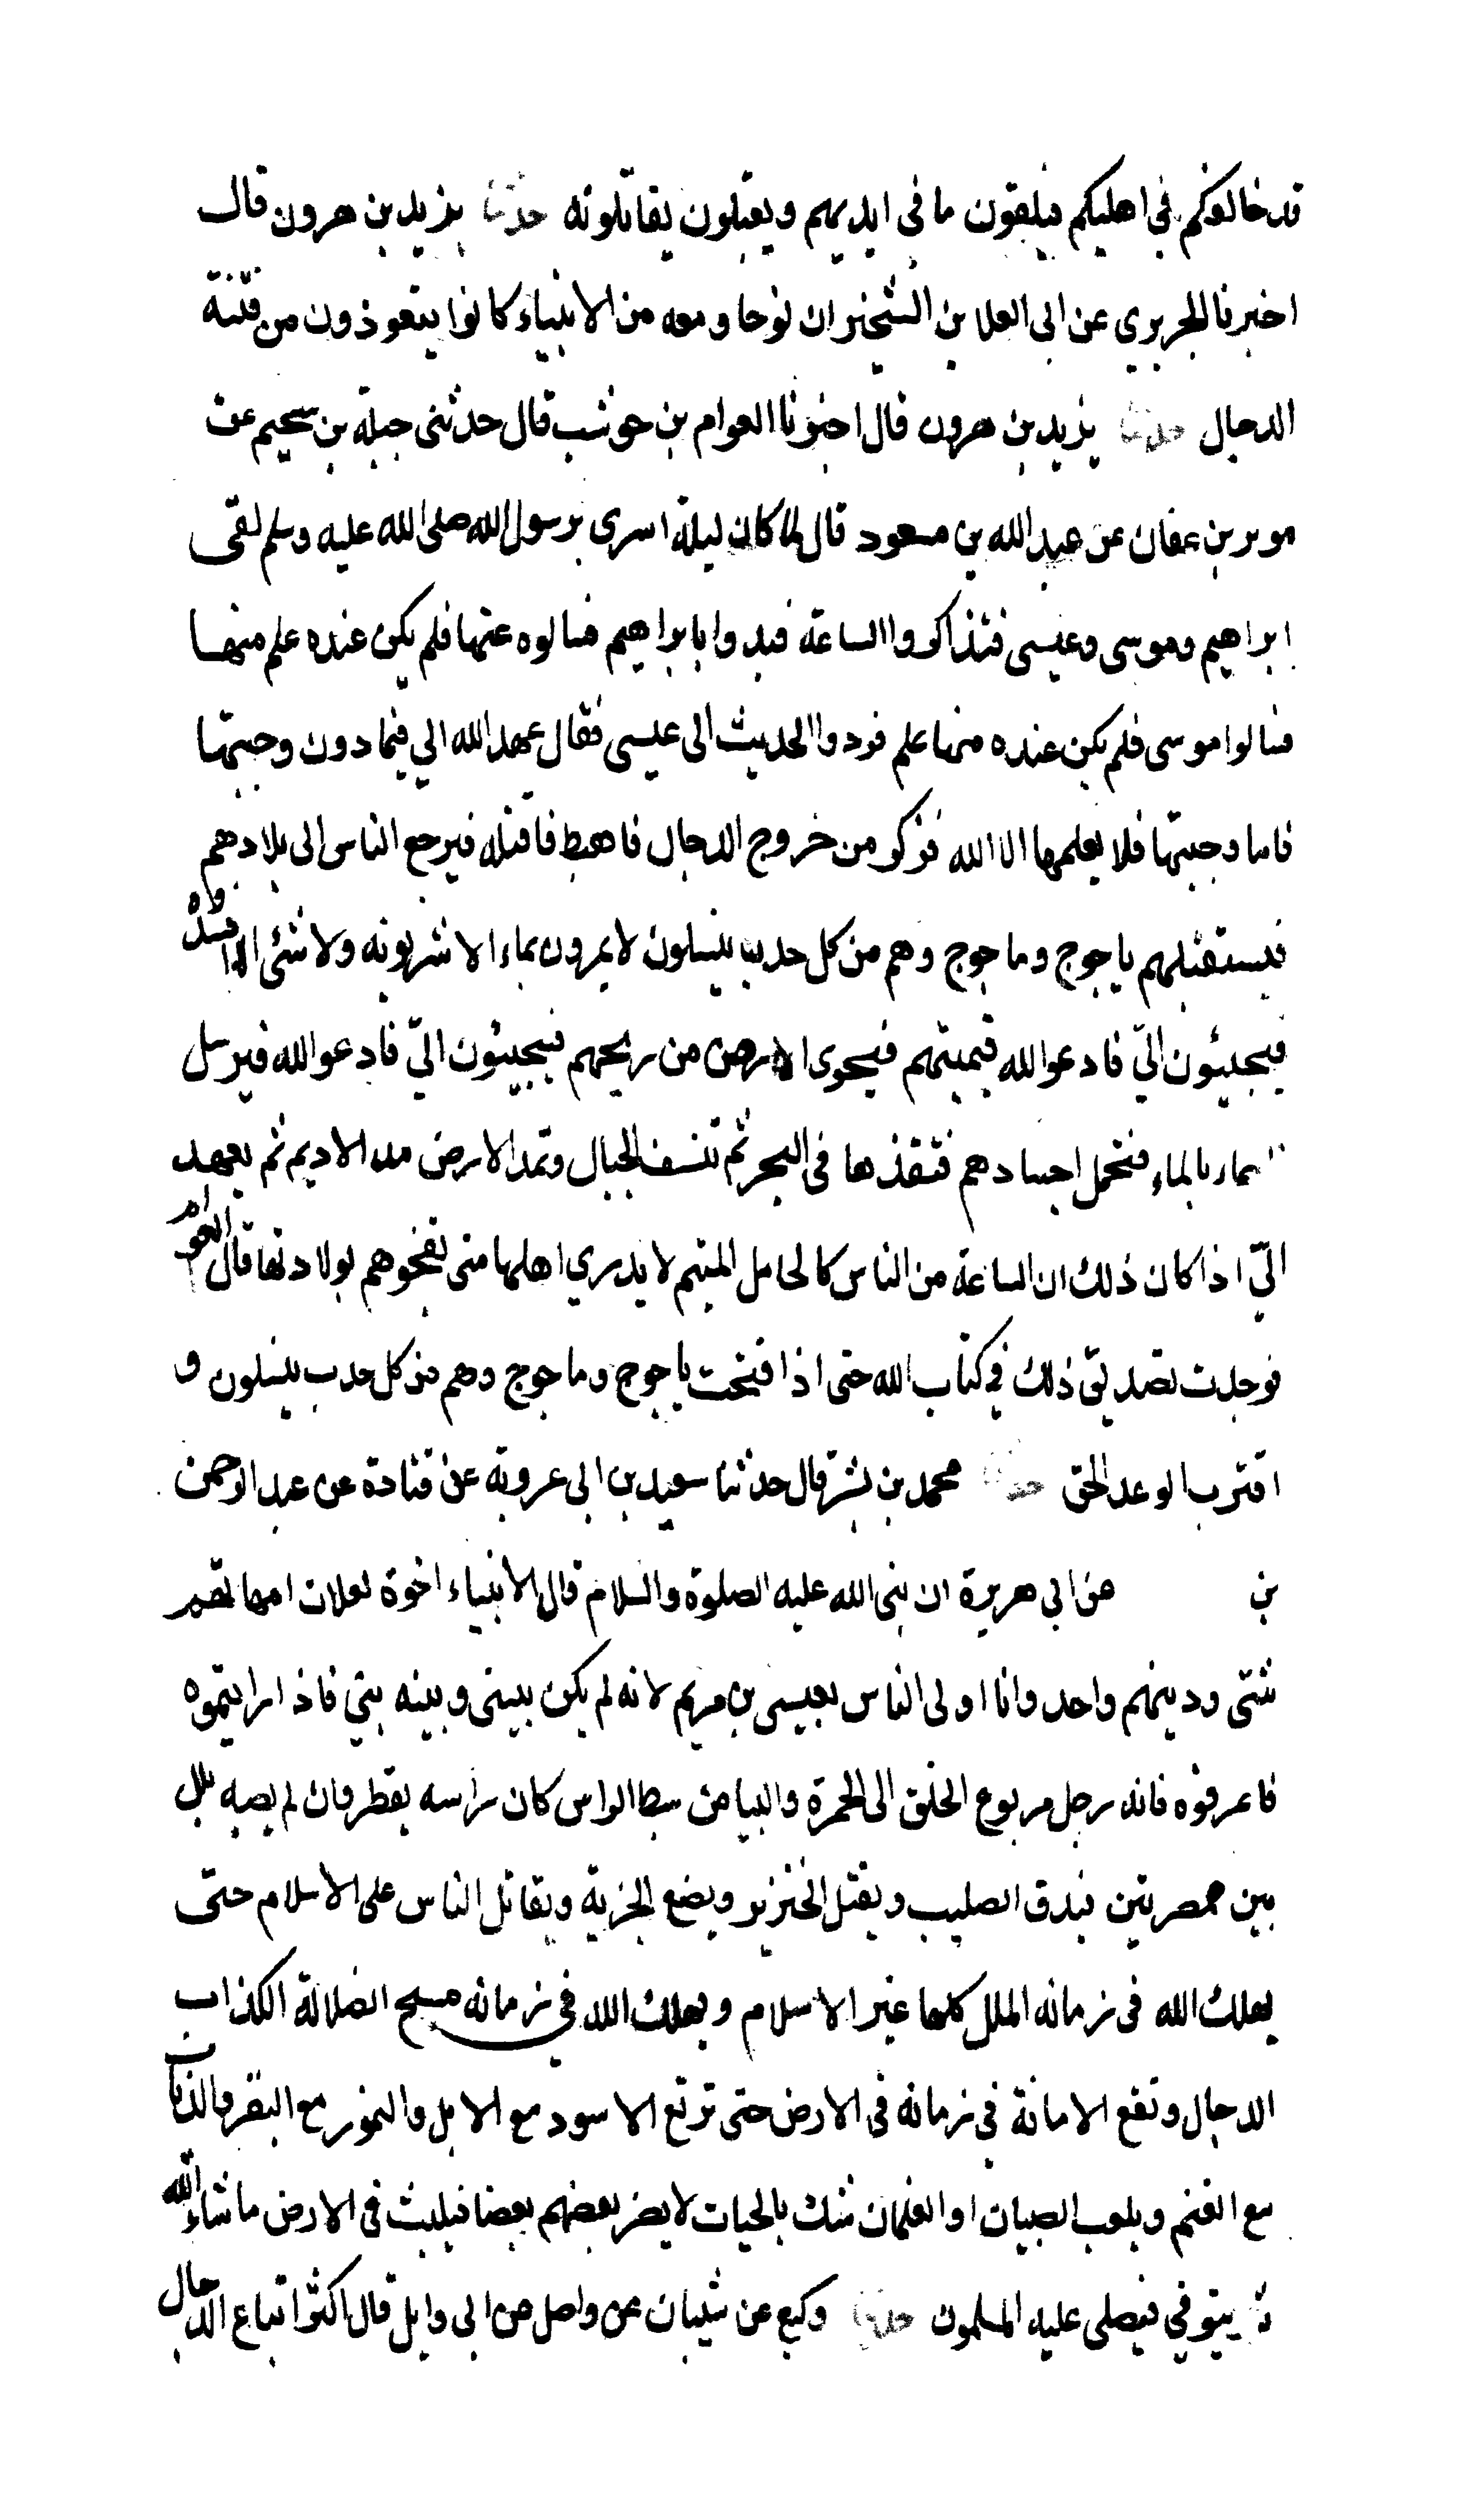 قد خالفكم في اهليكم فيلقون ما في ايديهم ويقبلون يقاتلونه حدثنا يزيد بن هرون قال
اخبرنا الجريري عن ابى العلا بن الشخير ان نوحا ومعه من الانبياء كانوا يتعوذون من فتنة
الدجال حدثنا يزيد بن هرون قال اخبرنا العوام بن حوشب قال حدثنى جبلة بن سحيم عن
موثر بن عفان عن عبد الله بن مسعود قال لما كان ليلة اسرى برسول الله صلى الله عليه وسلم لقى
ابراهيم وموسى وعيسى فتذاكروا الساعة فبدوا بابراهيم فسالوه عنها فلم يكن عنده علم منها
فسالوا موسى فلم يكن عنده منها علم فردوا الحديث الى عيسى فقال عهد الله الي فيما دون وجبتها
فاما وجبتها فلا يعلمها الا الله فذكر من خروج الدجال فاهبط فاقتله فيرجع الناس الى بلادهم
فيستقبلهم ياجوج وماجوج وهم من كل حدب ينسلون لا يمرون بماء الا شربوه ولا شئ الا افسدوه
فيجيئون اليّ فادعو الله فيميتهم فيجوى الارض من ريحهم فيجيئون اليّ فادعو الله فيرسل
السماء بالماء فتحمل اجسادهم فتقذفها فى البحر ثم تنسف الجبال وتمد الارض مد الاديم ثم يعهد
اليّ اذا كان ذلك ان الساعة من الناس كالحامل المتيم لا يدري اهلها متى تفجوهم بولادتها قال العوام
فوجدت تصديق ذلك في كتاب الله حتى اذا فتحت ياجوج وماجوج وهم من كل حدب ينسلون و
اقترب الوعد الحق حدثنا محمد بن بشر قال حدثنا سعيد بن ابى عروبة عن قتادة عن عبد الرحمن
بن عن ابي هريرة ان نبى الله عليه الصلوة والسلام قال الانبياء اخوة لعلات امهاتهم
شتى ودينهم واحد وانا اولى الناس بعيسى بن مريم لانه لم يكن بينى وبينه نبي فاذا رايتموه
فاعرفوه فانه رجل مربوع الخلق الى الحمرة والبياض سبط الراس كان راسه يقطر وان لم يصبه بلل
بين ممصرتين فيدق الصليب ويقتل الخنزير ويضع الجزية ويقاتل الناس على الاسلام حتى
يهلك الله فى زمانه الملل كلها غير الاسلام ويهلك الله في زمانه مسيح الضلالة الكذاب
الدجال وتقع الامانة في زمانه فى الارض حتى ترتع الاسود مع الابل والنمور مع البقر والذئاب
مع الغنم ويلعب الصبيان او الغلمان شك بالحيات لا يضر بعضهم بعضا فيلبث فى الارض ما شاء الله
ثم يتوفي فيصلى عليه المسلمون حدثنا وكيع عن شيبان عن واصل عن ابى وايل قال اكثر اتباع الدجال